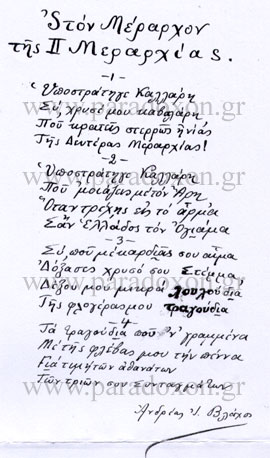 Στόν Μέραρχον
τῆς ΙΙ Μεραρχίας.
-1-
Ὑποστράτηγε Καλλάρη
Σύ, χρυσέ μου καβαλάρη
Ποῦ κρατεῖς στερρῶς ἡνίας
Τῆς Δευτέρας Μεραρχίας!
-2-
Ὑποστράτηγε Καλλάρη
Ποῦ μοιάζεις μέ τόν Ἄρη
Ὅταν τρέχῃς εἰς τό ἅρμα
Σάν Ἑλλάδος τόν
-3-
Σύ, ποῦ μέ καρδιᾶς σου αἷμα
Δόξασες χρυσό σου Στέμμα
Δέξου μου μικρά λουλούδια
Τῆς φλογέρας μου τραγούδια
-4-
Τά τραγούδια ποῦ ν' γραμμένα
Μέ τῆς φλέβας μου τήν πέννα
Γιά τιμητῶν ἀθανάτων
Τῶν τριῶν σου Συνταγμάτων
Ἀνδρέας Ν. Βλάχος
www.paradoxon.gr
www.paradoxon.gr
www.paradoxon.gr